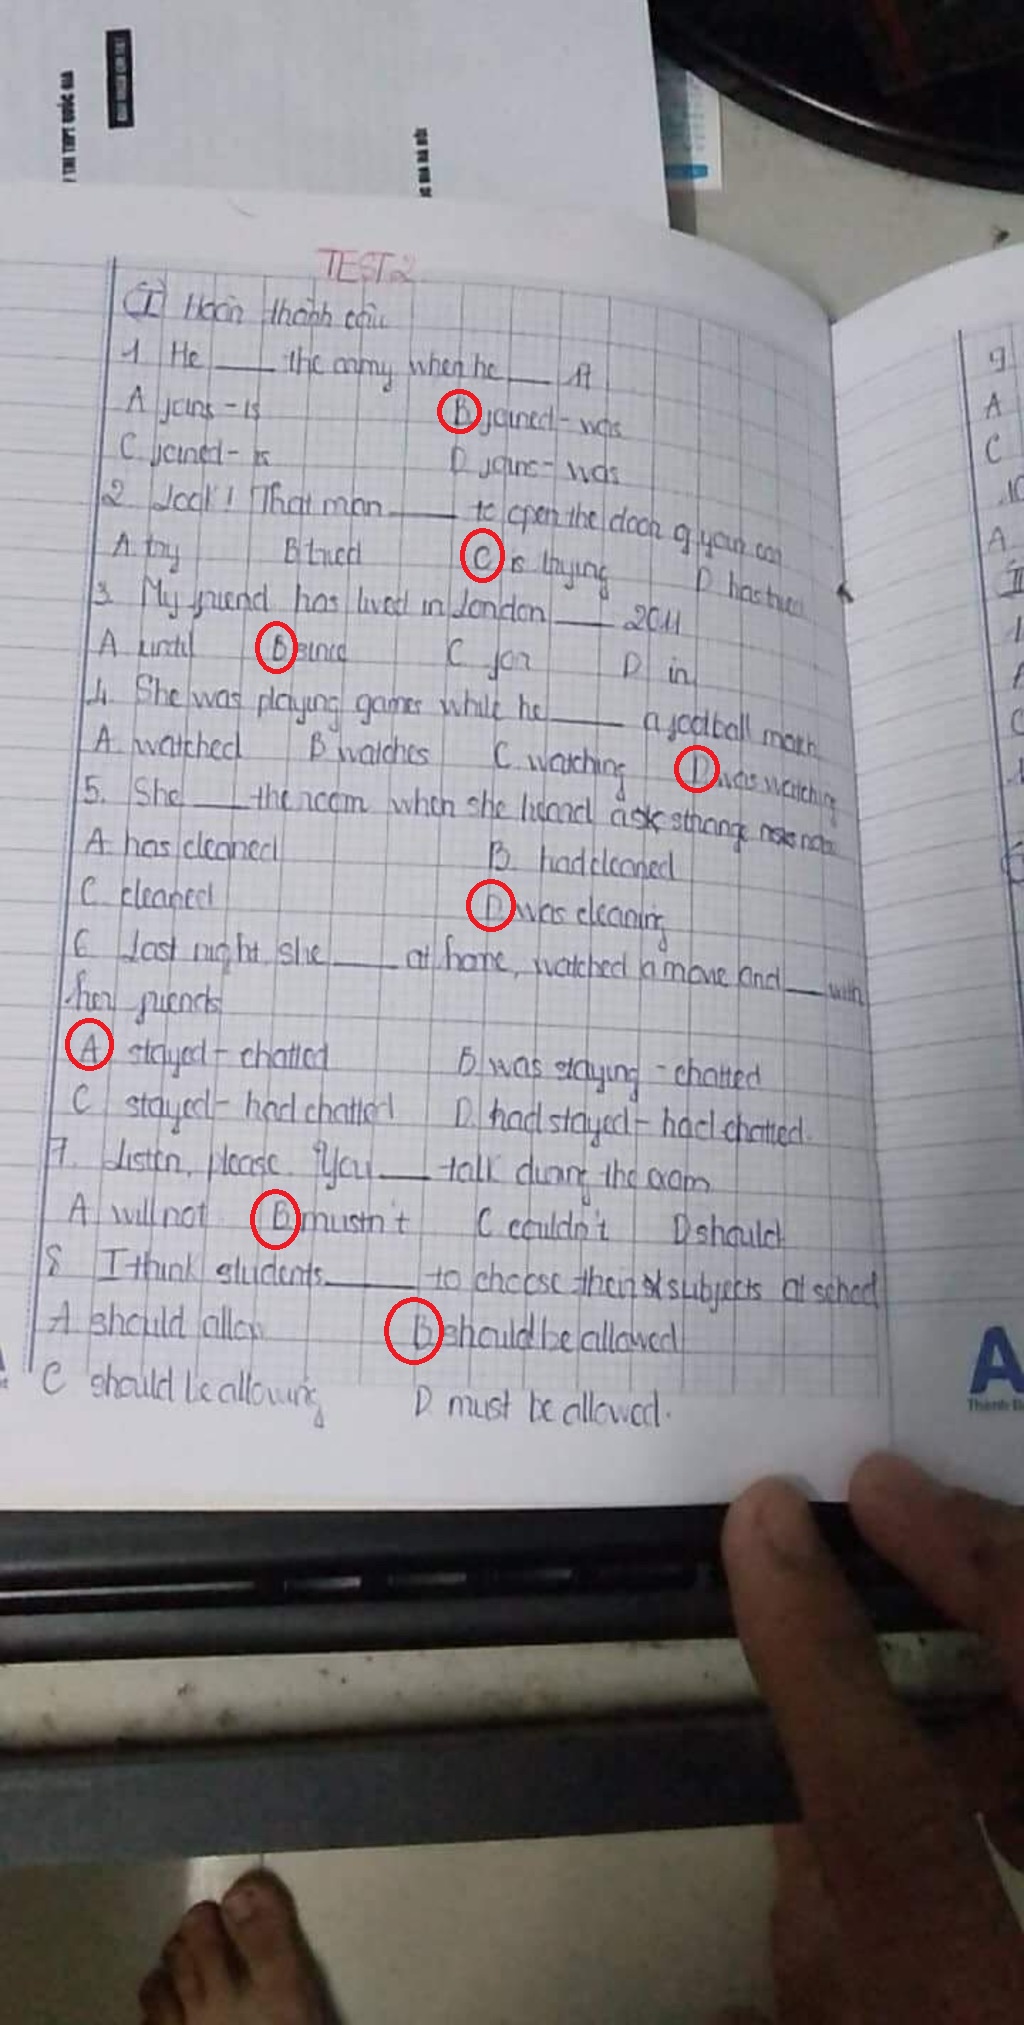 I THI THPT QUỐC GIA
TEST 2
I Hoàn thành câu
1. He ___ the army when he ___ 17
A joins - is
B joined - was
C joined - is
D joins - was
2 Look! That man ___ to open the door of your car
A try B tried C is trying D has tried
3. My friend has lived in London ___ 2011
A until B since C for D in
4. She was playing games while he ___ a football match
A watched B watches C watching D was watching
5. She ___ the room when she heard a strange
A has cleaned B had cleaned
C cleaned D was cleaning
6 Last night she ___ at home, watched a movie and ___ with
her friends
A stayed - chatted B was staying - chatted
C stayed - had chatted D. had stayed - had chatted.
7. Listen, please. You ___ talk during the exam
A will not B mustn't C couldn't D should
8 I think students ___ to choose their subjects at school
A should allow B should be allowed
C should be allowing D must be allowed.
9
A
C
10
A
A